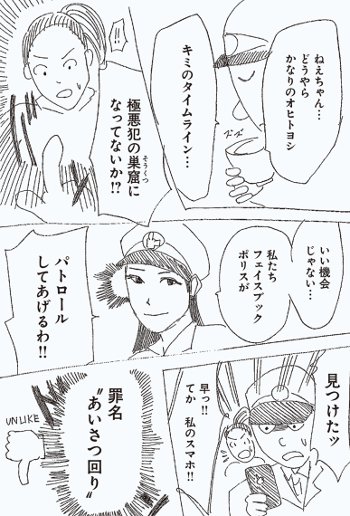 ねえちゃん…
どうやら
かなりのオヒトヨシ
ズズ
キミのタイムライン…
!!
極悪犯の巣窟に
そうくつ
なってないか!?
いい機会
じゃない…
私たち
フェイスブック
ポリスが
パトロール
してあげるわ!!
見つけたッ
早っ!!
てか 私のスマホ!!
罪名
“あいさつ回り”
UNLIKE